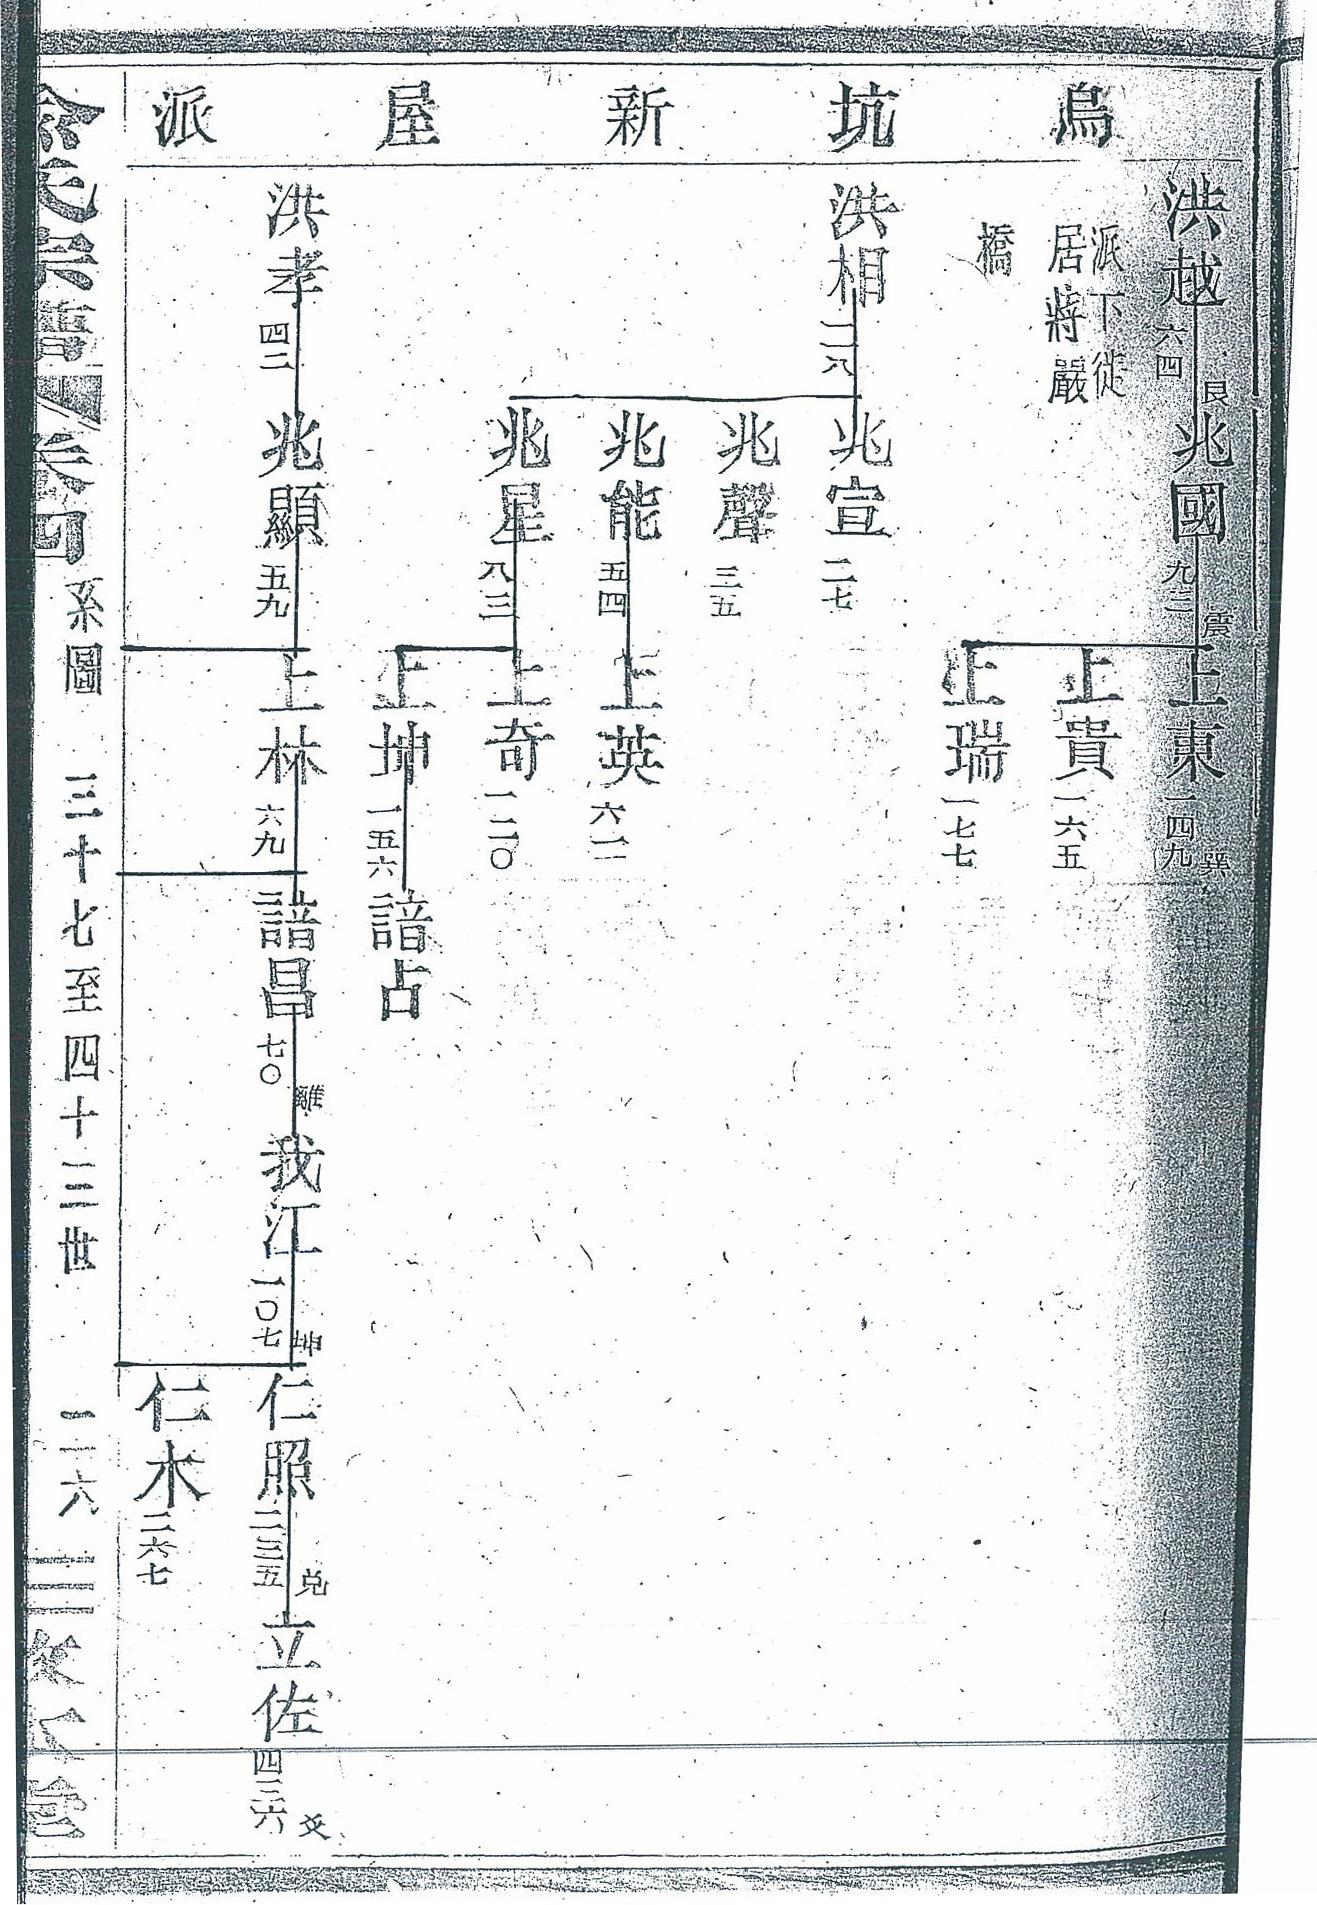 烏坑新屋派
洪越 六四 艮
兆國 九三 震
上東 一四九 巽
派下徙
居蔣嚴
橋
上貴 一六五
上瑞 一七七
洪相 二八
兆宣 二七
兆聲 三五
兆能 五四
上英 六二
兆星 八三
上奇 一二〇
上坤 一五六
諳占
洪孝 四二
兆顯 五九
上林 六九
諳昌 七〇 離
我江 一〇七 坤
仁照 二三五 兌
立佐 四三六 爻
仁木 二六七
余氏宗譜 卷四 系圖 三十七至四十三世 二六